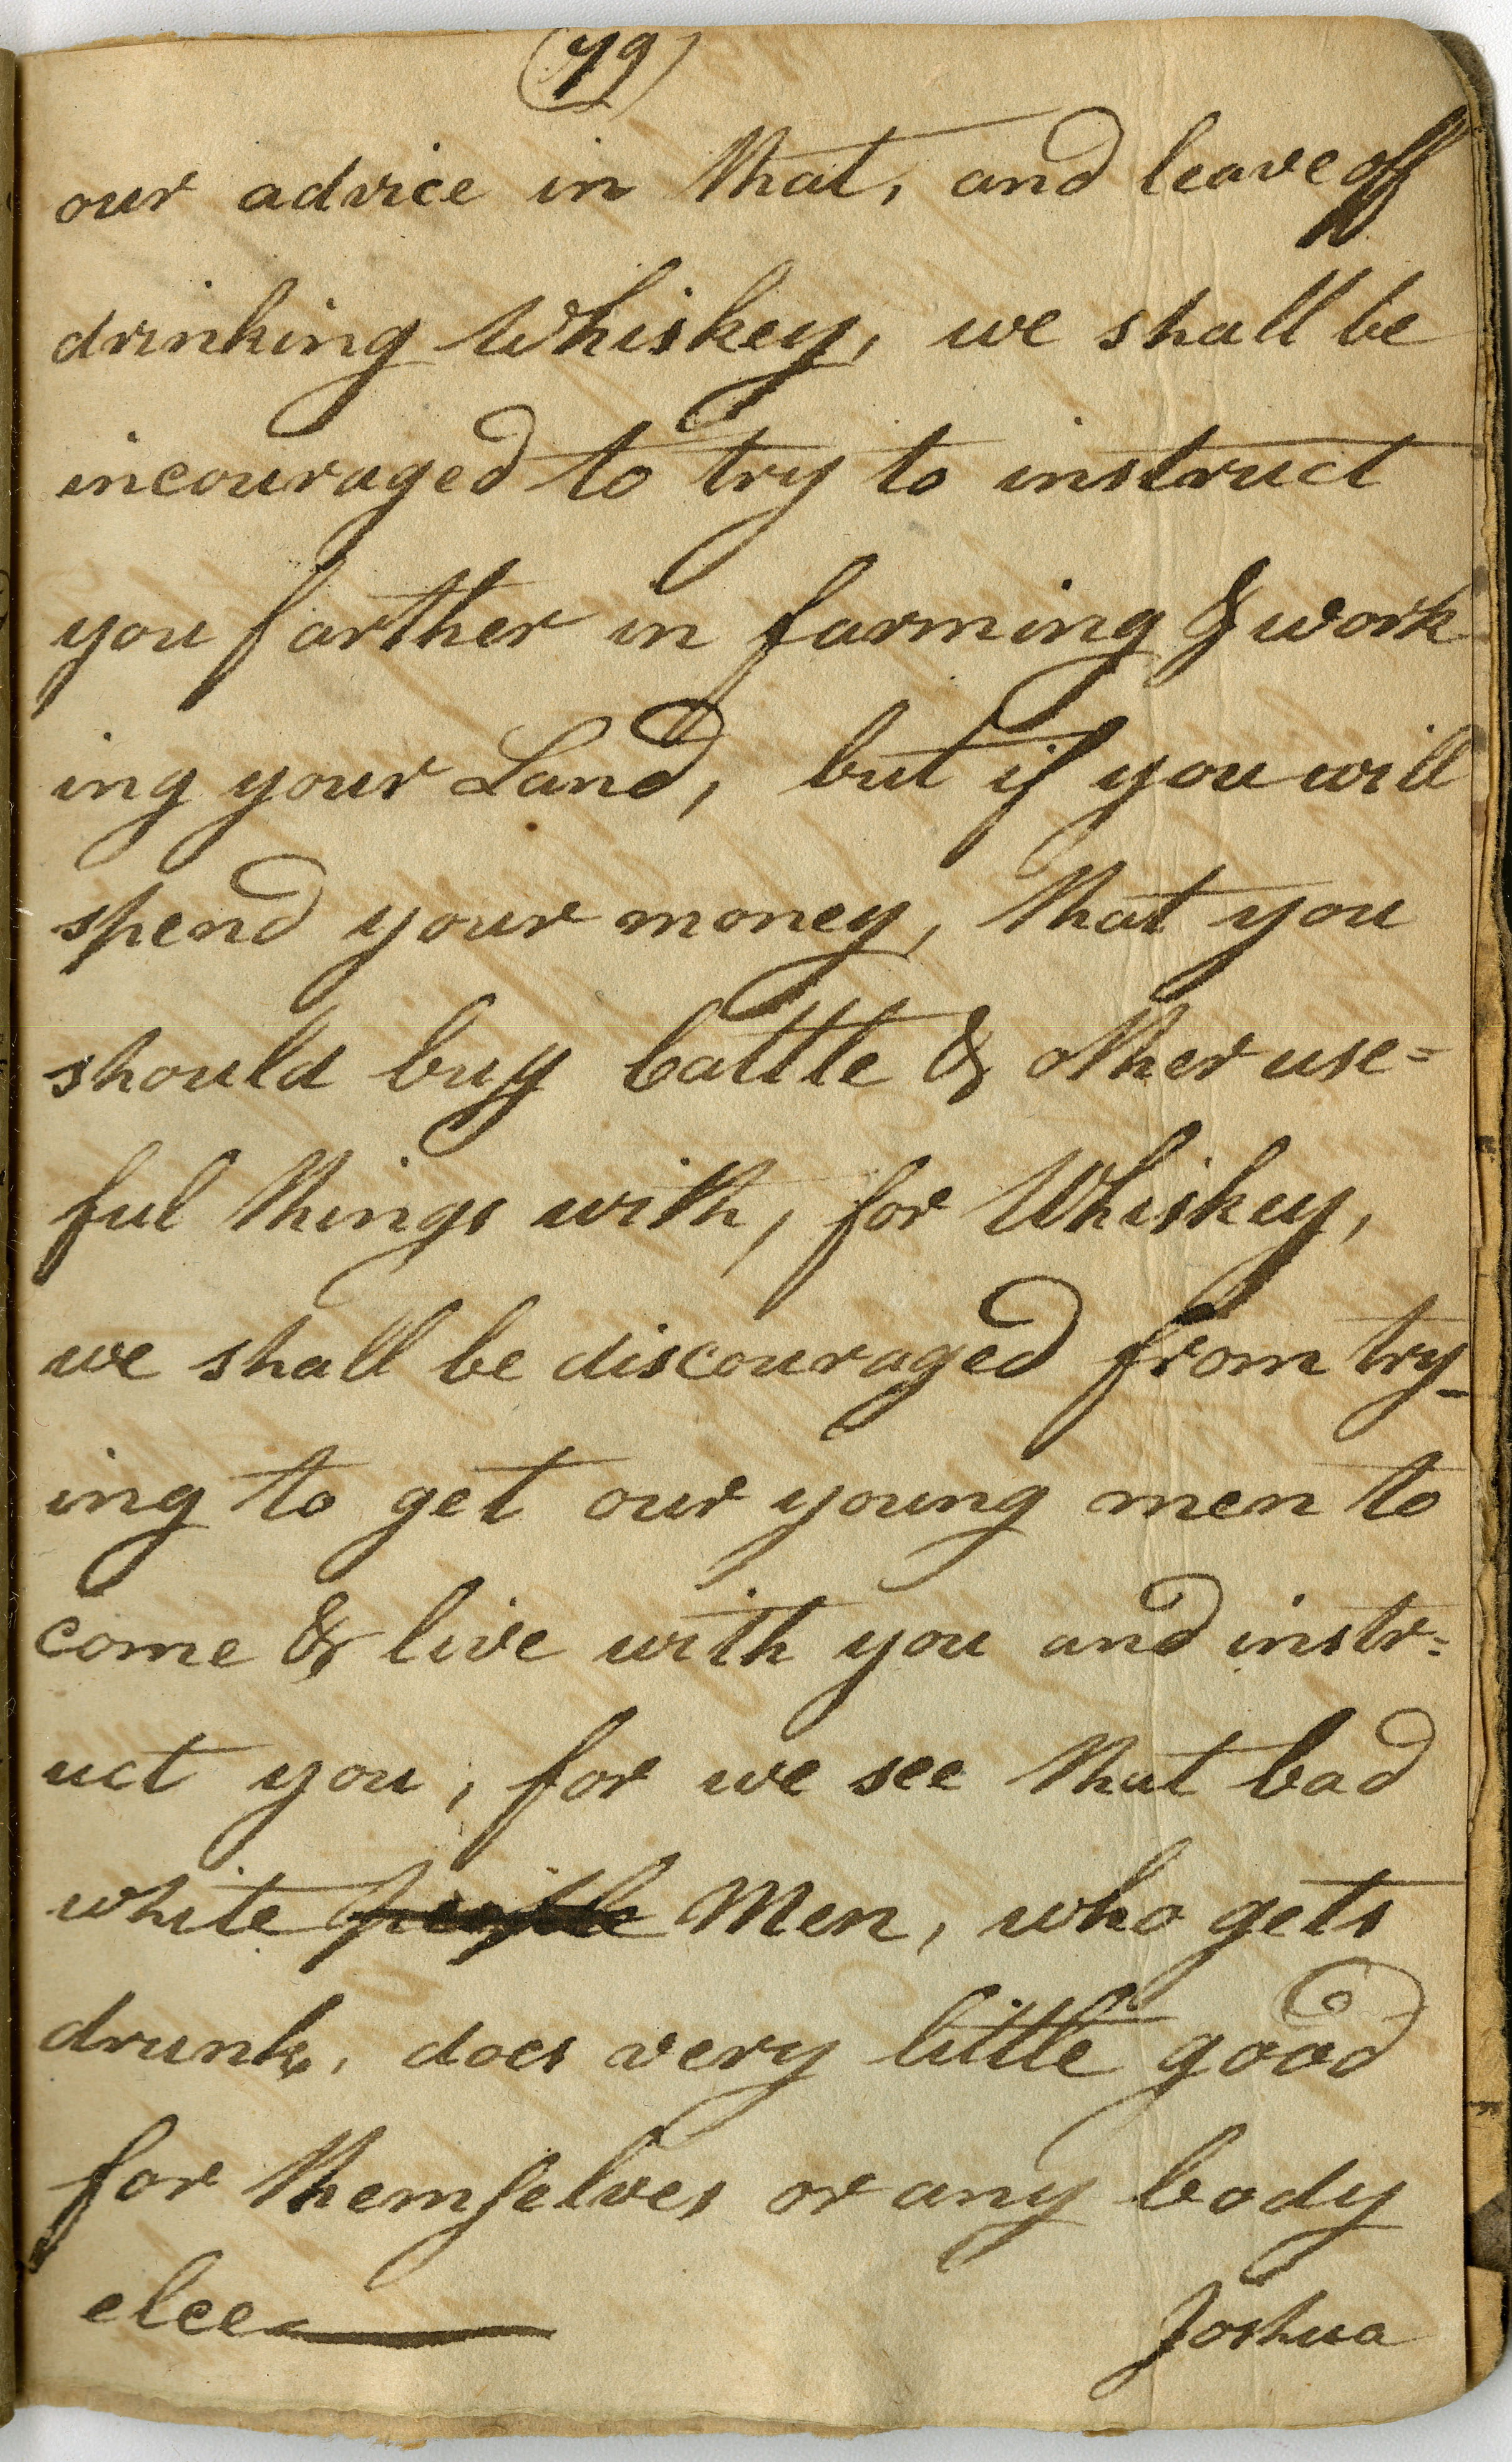 (79)
our advice in that, and leave off
drinking Whiskey, we shall be
incouraged to try to instruct
you farther in farming & work
ing your Land, but if you will
spend your money, that you
should buy Cattle & other use=
ful things with, for Whiskey,
we shall be discouraged from try-
ing to get our young men to
come & live with you and instr=
uct you, for we see that bad
white people Men, who gets
drunk, does very little good
for themselves or any body
elce
Joshua